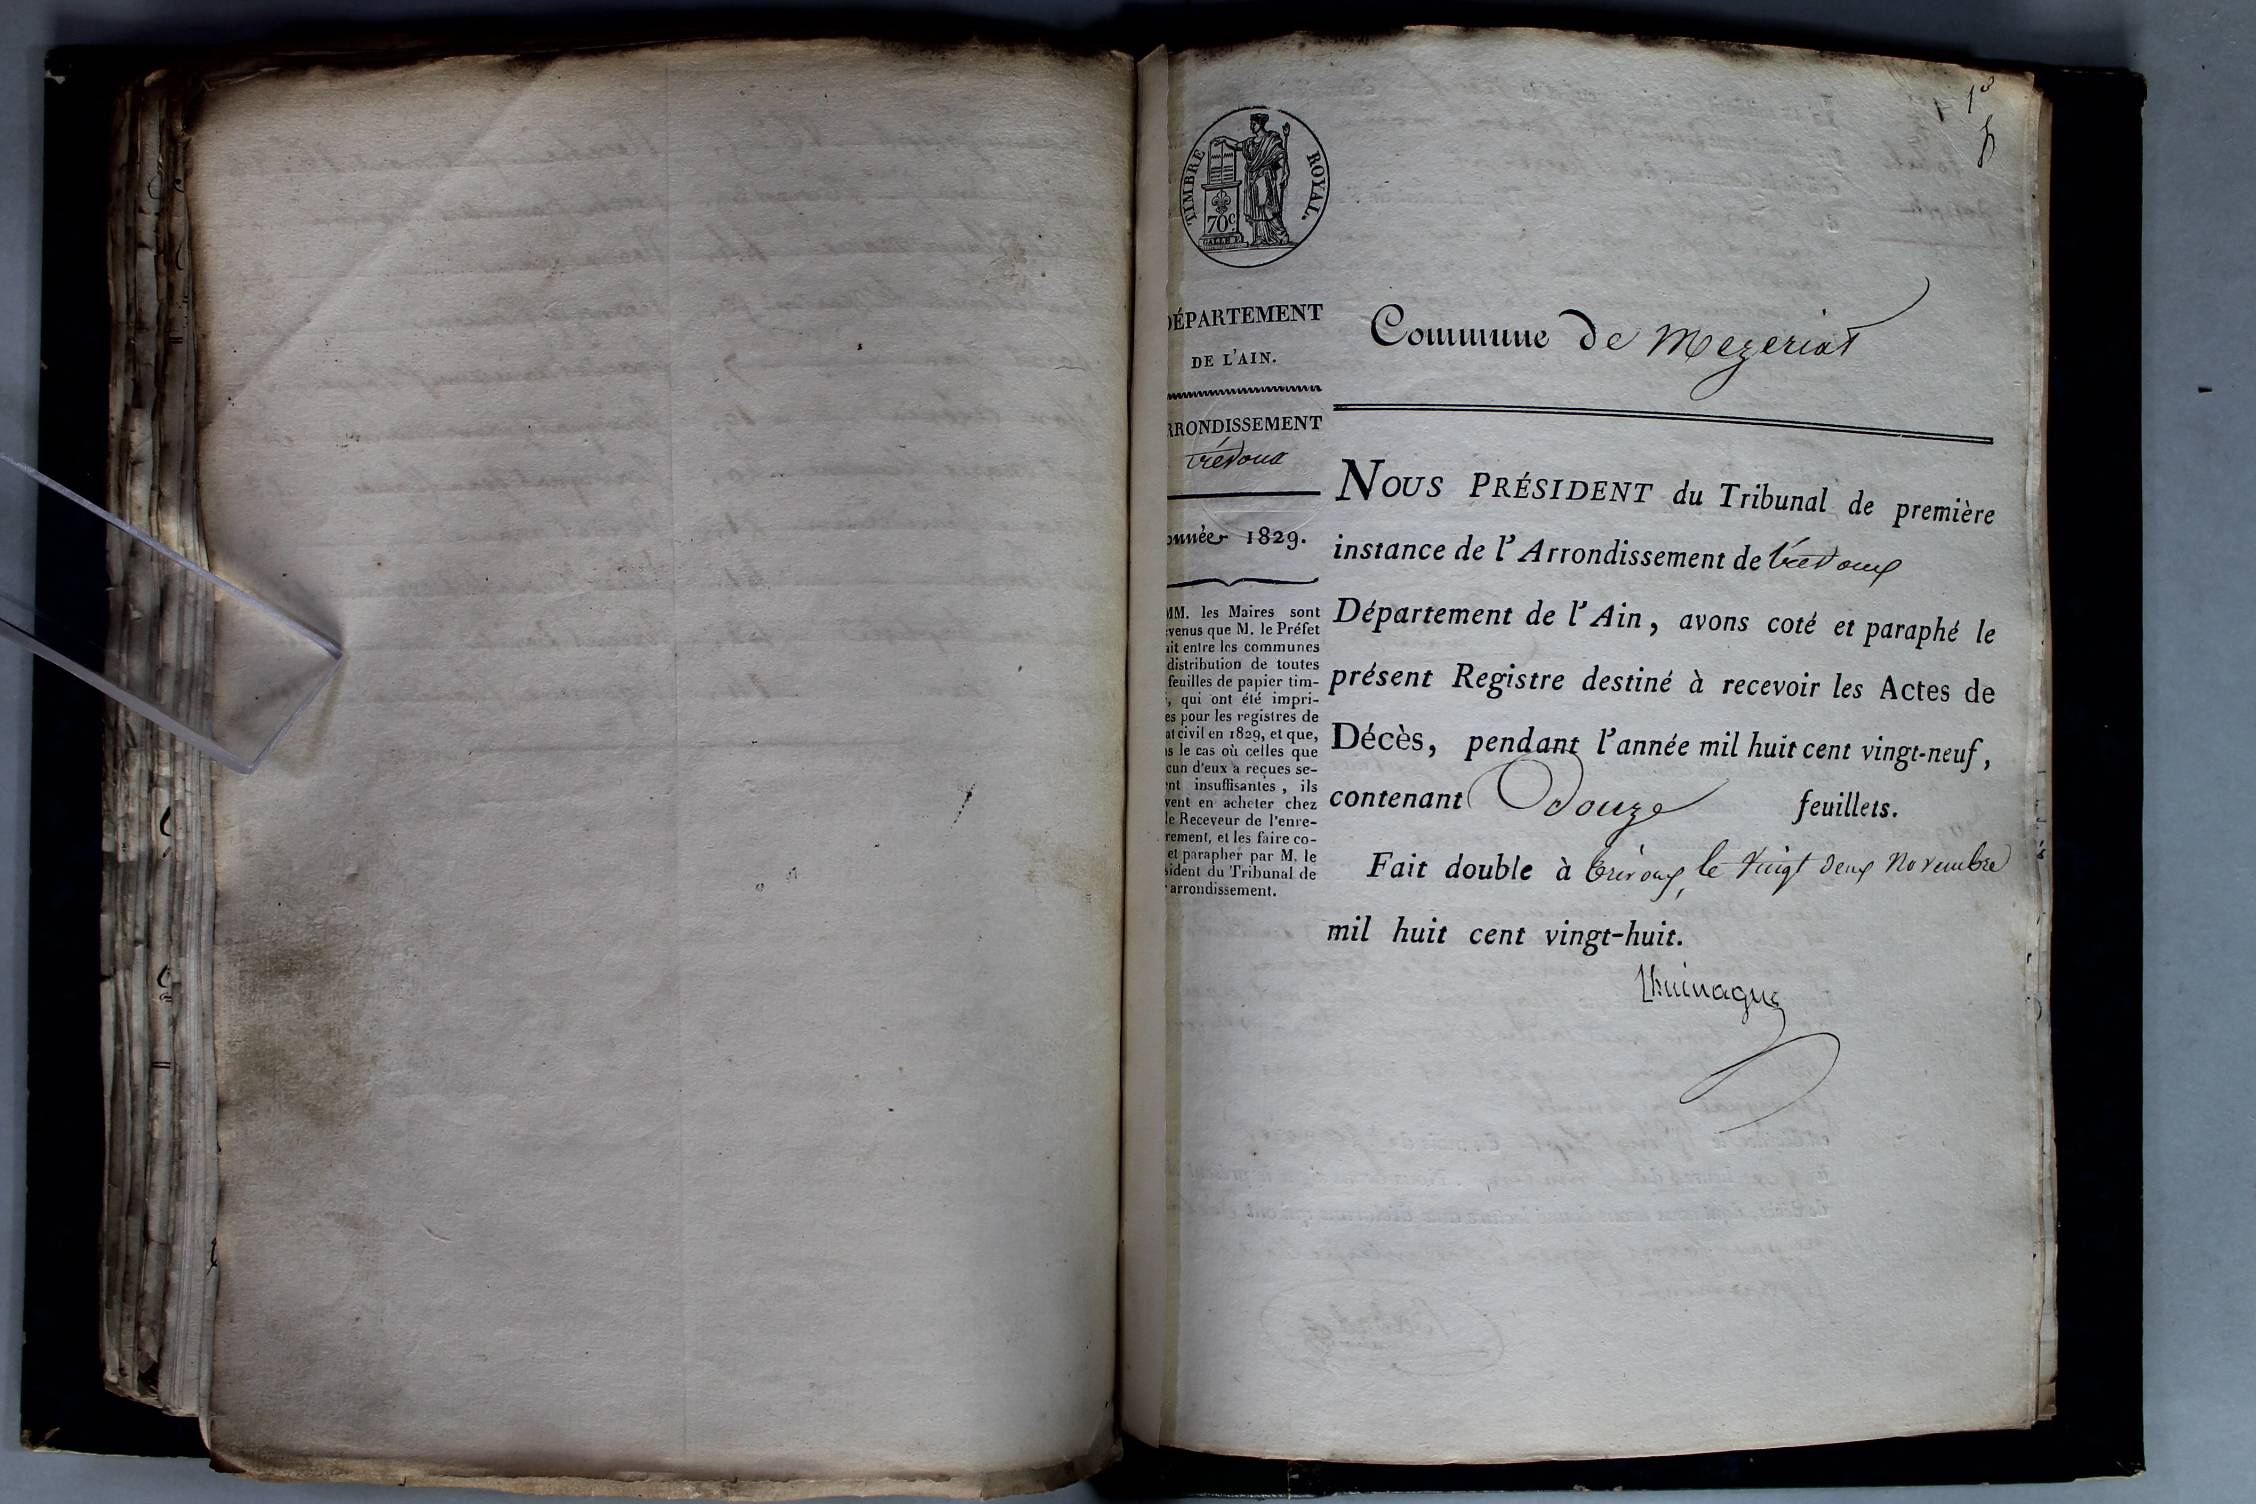 TIMBRE ROYAL.
70c.
1er
DÉPARTEMENT
DE L'AIN.
Commune de Mezeriat
RRONDISSEMENT
trévoux
nnée 1829.
MM. les Maires sont
venus que M. le Préfet
ait entre les communes
distribution de toutes
feuilles de papier tim-
, qui ont été impri-
es pour les registres de
at civil en 1829, et que,
s le cas où celles que
cun d'eux a reçues se-
nt insuffisantes, ils
vent en acheter chez
le Receveur de l'enre-
rement, et les faire co-
et parapher par M. le
sident du Tribunal de
arrondissement.
NOUS PRÉSIDENT du Tribunal de première
instance de l'Arrondissement de trévoux
Département de l'Ain, avons coté et paraphé le
présent Registre destiné à recevoir les Actes de
Décès, pendant l'année mil huit cent vingt-neuf,
contenant Douze feuillets.
Fait double à trévoux, le vingt deux novembre
mil huit cent vingt-huit.